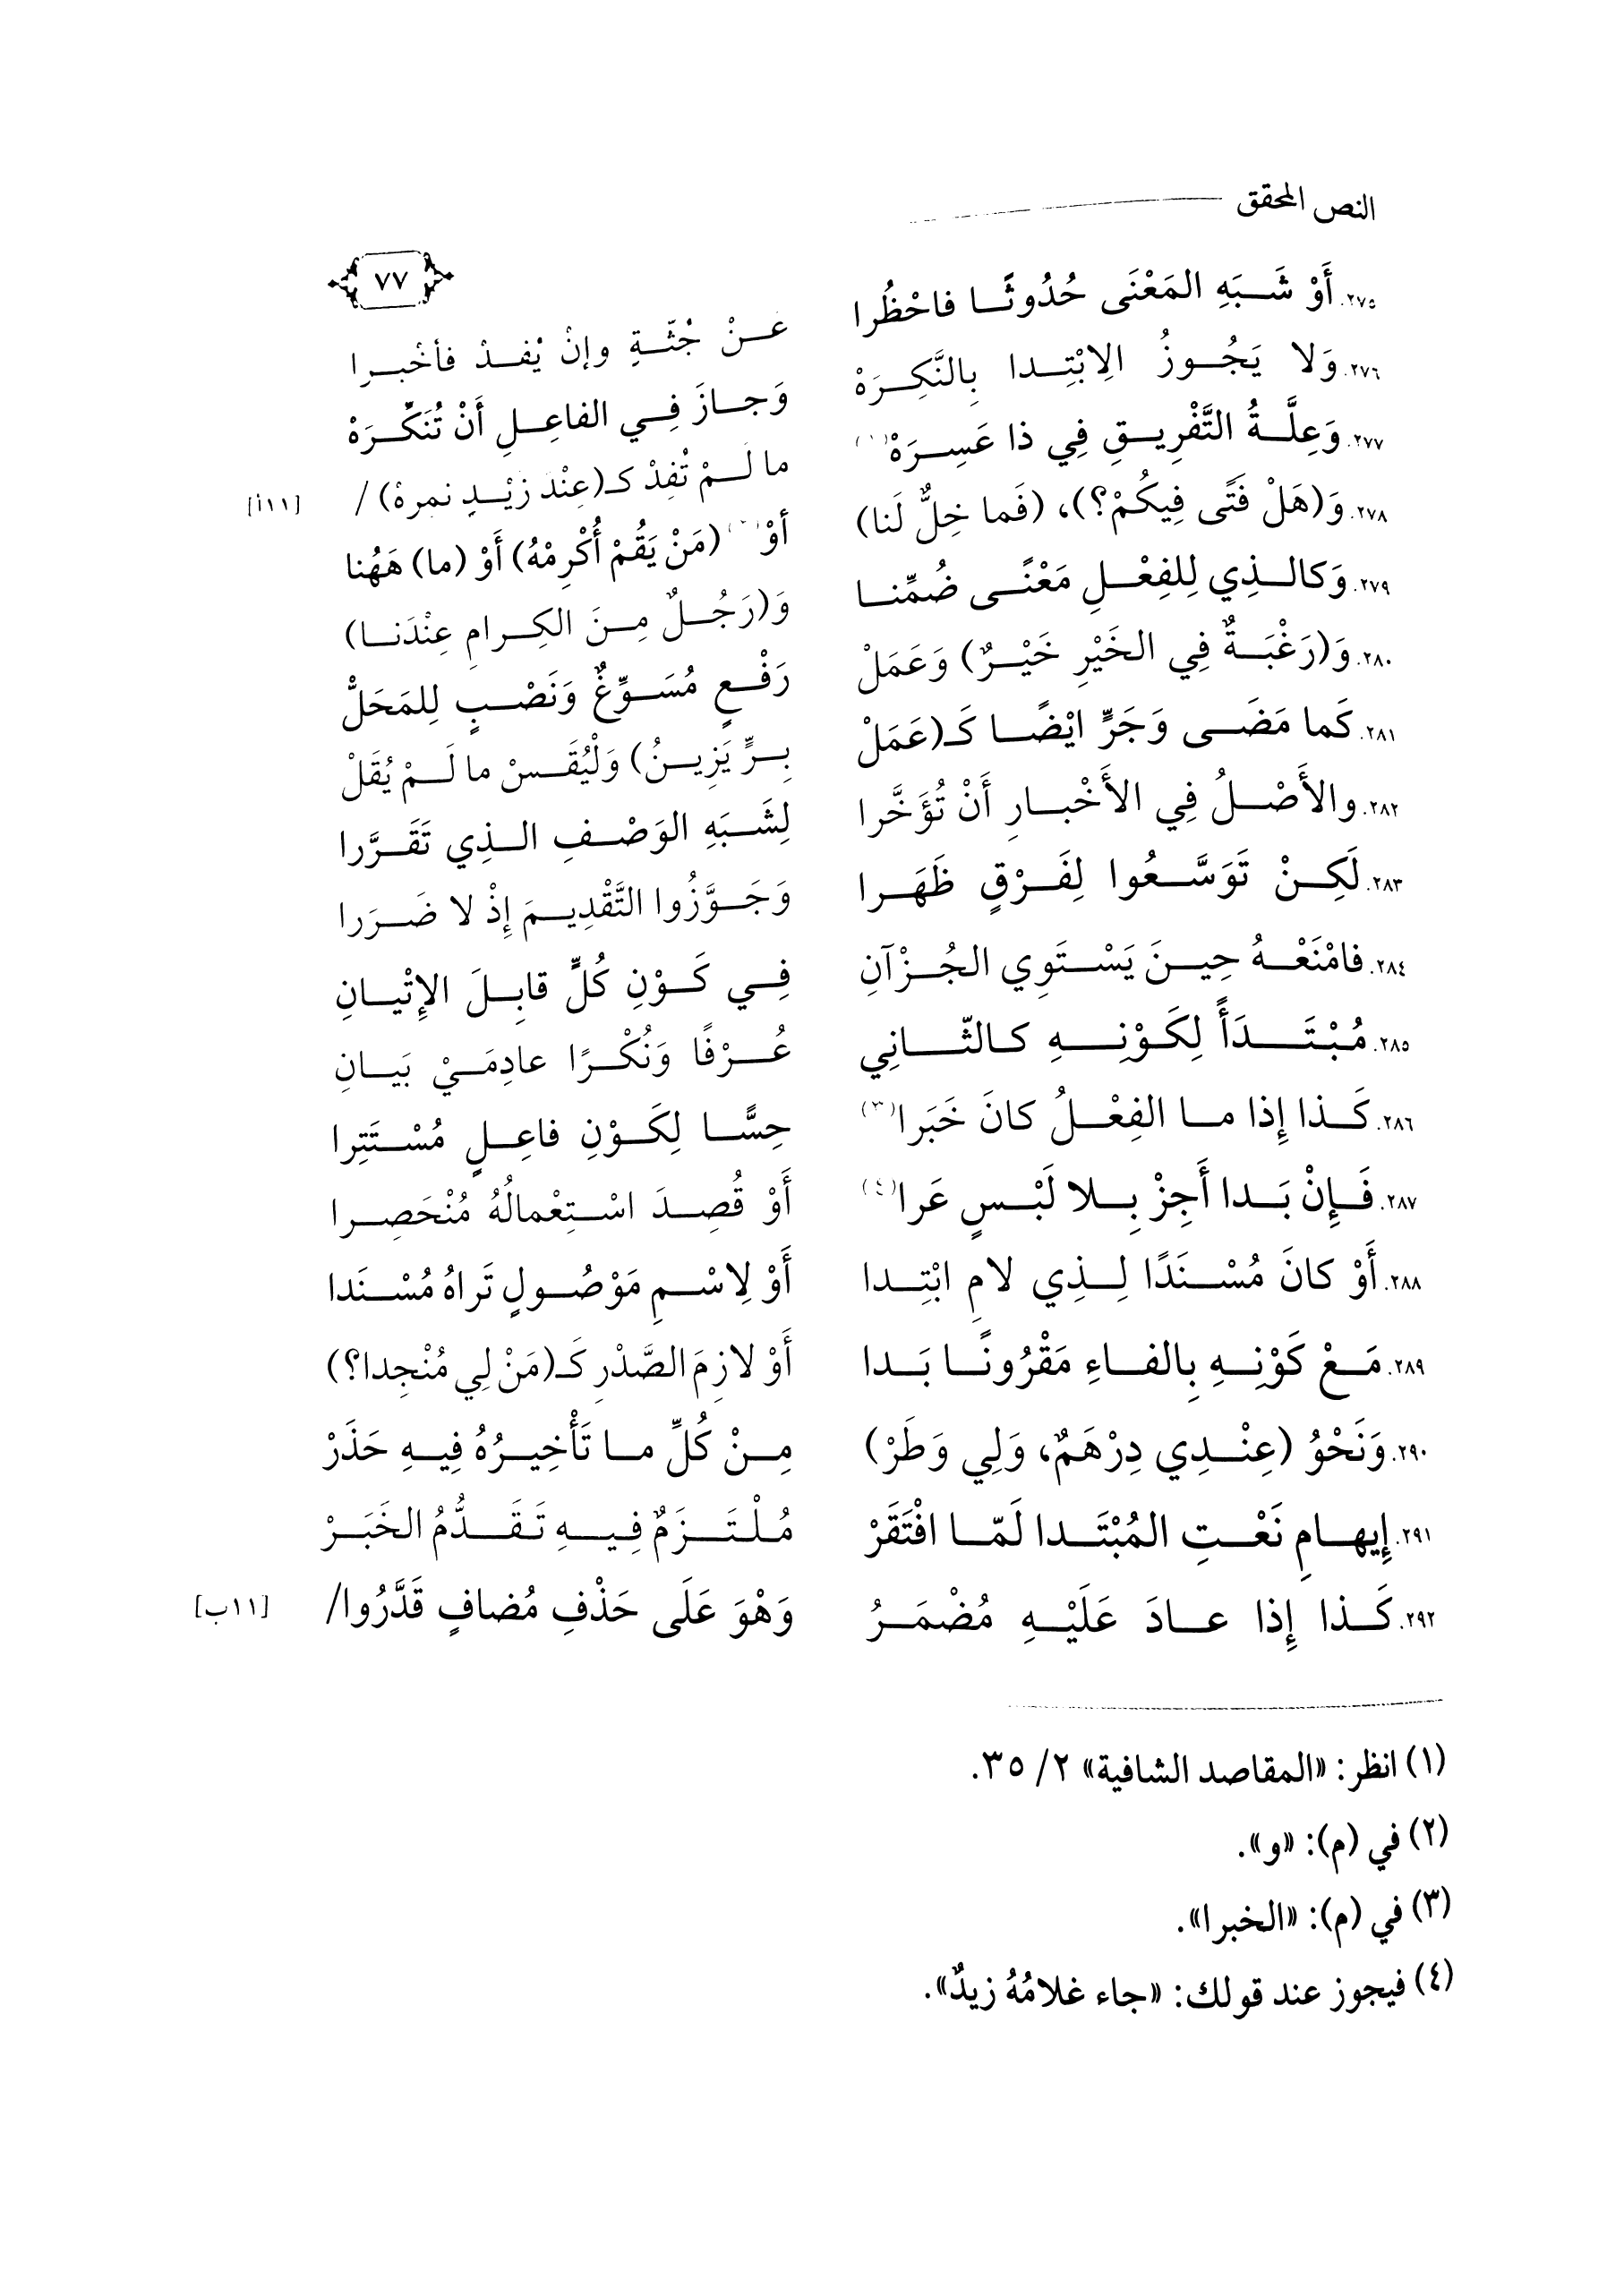 النص المحقق
٧٧
٢٧٥. أَوْ شَبَهِ المَعْنَى حُدُوثًا فاحْظُرا عَنْ جُثَّةٍ وإنْ يُفِدْ فأخْبِرا
٢٧٦. وَلا يَجُوزُ الِابْتِدا بِالنَّكِرَهْ وَجازَ فِي الفاعِلِ أَنْ تُنَكِّرَهْ
٢٧٧. وَعِلَّةُ التَّفْرِيقِ فِي ذا عَسِرَهْ(١) ما لَمْ تُفِدْ كـ(عِنْدَ زَيْدٍ نمره) / [١١أ]
٢٧٨. وَ(هَلْ فَتًى فِيكُمْ؟)، (فَما خِلٌّ لَنا) أوْ(٢) (مَنْ يَقُمْ أُكْرِمْهُ) أَوْ (ما) هَهُنا
٢٧٩. وَكالذِي لِلفِعْلِ مَعْنًى ضُمِّنا وَ(رَجُلٌ مِنَ الكِرامِ عِنْدَنا)
٢٨٠. وَ(رَغْبَةٌ فِي الخَيْرِ خَيْرٌ) وَعَمَلْ رَفْعٍ مُسَوِّغٌ وَنَصْبٍ لِلمَحَلّْ
٢٨١. كَما مَضَى وَجَرٍّ ايْضًا كَـ(عَمَلْ بِرٍّ يَزِينُ) وَلْيُقَسْ ما لَمْ يُقَلْ
٢٨٢. والأَصْلُ فِي الأَخْبارِ أَنْ تُؤَخَّرا لِشَبَهِ الوَصْفِ الذِي تَقَرَّرا
٢٨٣. لَكِنْ تَوَسَّعُوا لِفَرْقٍ ظَهَرا وَجَوَّزُوا التَّقْدِيمَ إِذْ لا ضَرَرا
٢٨٤. فامْنَعْهُ حِينَ يَسْتَوِي الجُزْآنِ فِي كَوْنِ كُلٍّ قابِلَ الإِتْيانِ
٢٨٥. مُبْتَدَأً لِكَوْنِهِ كالثّانِي عُرْفًا وَنُكْرًا عادِمَيْ بَيانِ
٢٨٦. كَذا إِذا ما الفِعْلُ كانَ خَبَرا(٣) حِسًّا لِكَوْنِ فاعِلٍ مُسْتَتِرا
٢٨٧. فَإِنْ بَدا أَجِزْ بِلا لَبْسٍ عَرا(٤) أَوْ قُصِدَ اسْتِعْمالُهُ مُنْحَصِرا
٢٨٨. أَوْ كانَ مُسْنَدًا لِذِي لامِ ابْتِدا أَوْ لِاسْمِ مَوْصُولٍ تَراهُ مُسْنَدا
٢٨٩. مَعْ كَوْنِهِ بِالفاءِ مَقْرُونًا بَدا أَوْ لازِمَ الصَّدْرِ كَـ(مَنْ لِي مُنْجِدا؟)
٢٩٠. وَنَحْوُ (عِنْدِي دِرْهَمٌ، وَلِي وَطَرْ) مِنْ كُلِّ ما تَأْخِيرُهُ فِيهِ حَذَرْ
٢٩١. إِيهامِ نَعْتِ المُبْتَدا لَمّا افْتَقَرْ مُلْتَزَمٌ فِيهِ تَقَدُّمُ الخَبَرْ
٢٩٢. كَذا إِذا عادَ عَلَيْهِ مُضْمَرُ وَهْوَ عَلَى حَذْفِ مُضافٍ قَدَّرُوا/ [١١ب]
(١) انظر: «المقاصد الشافية» ٢/ ٣٥.
(٢) في (م): «و».
(٣) في (م): «الخبرا».
(٤) فيجوز عند قولك: «جاء غلامُهُ زيدٌ».